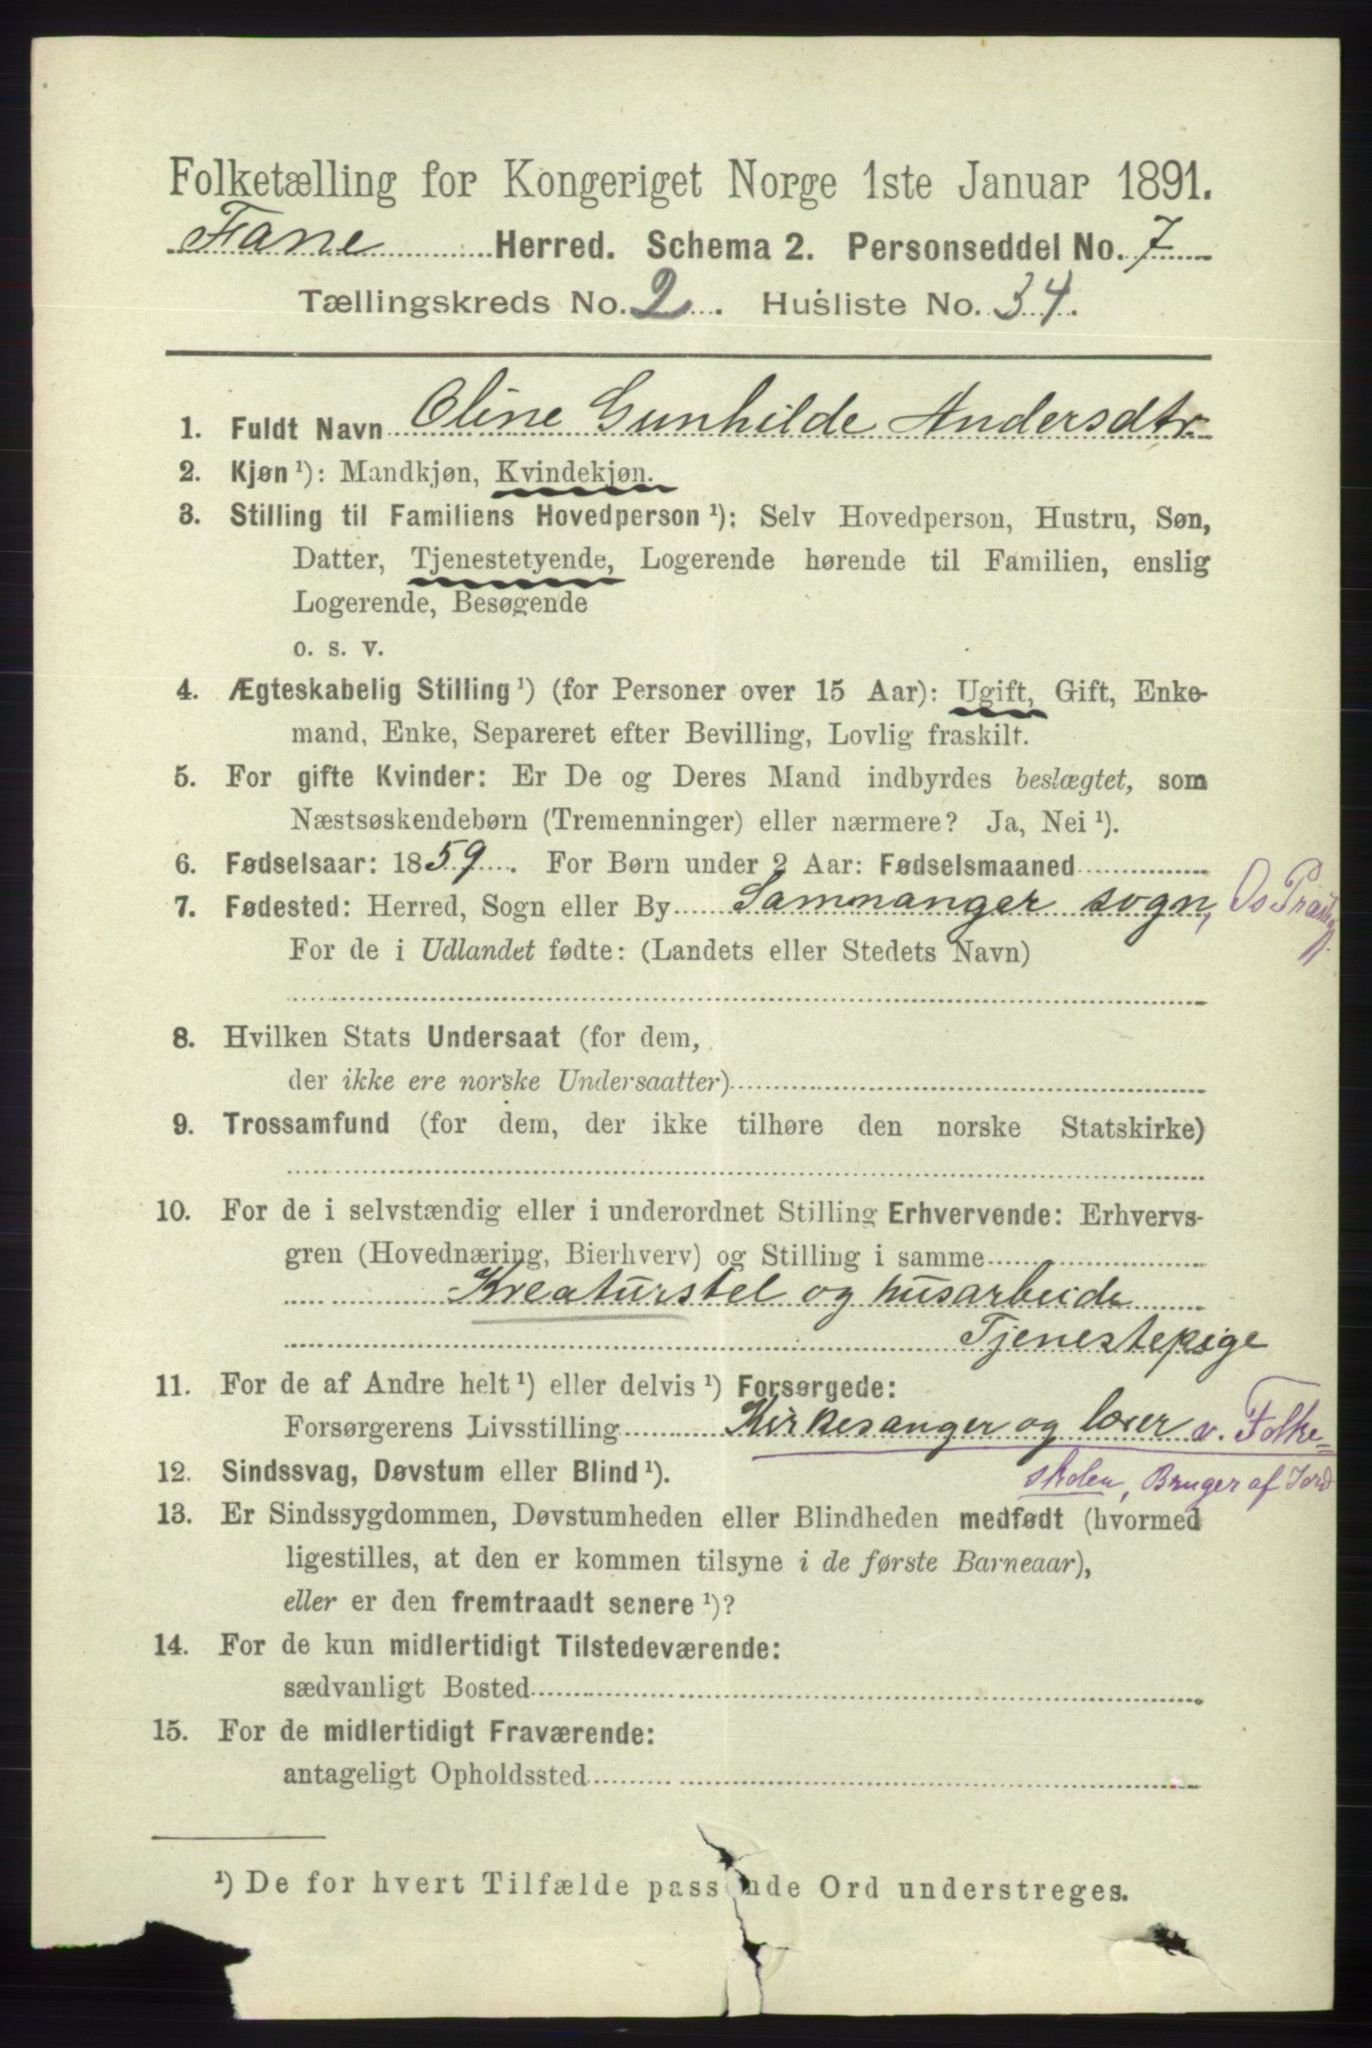 Folketælling for Kongeriget Norge 1ste Januar 1891.
Fane Herred. Schema 2. Personseddel No. 7
Tællingskreds No. 2. Husliste No. 34.
1. Fuldt Navn Oline Gunhilde Andersdtr.
2. Kjøn ¹): Mandkjøn, Kvindekjøn.
3. Stilling til Familiens Hovedperson ¹): Selv Hovedperson, Hustru, Søn,
Datter, Tjenestetyende, Logerende hørende til Familien, enslig
Logerende, Besøgende
o. s. v.
4. Ægteskabelig Stilling ¹) (for Personer over 15 Aar): Ugift, Gift, Enke-
mand, Enke, Separeret efter Bevilling, Lovlig fraskilt.
5. For gifte Kvinder: Er De og Deres Mand indbyrdes beslægtet, som
Næstsøskendebørn (Tremenninger) eller nærmere? Ja, Nei ¹).
6. Fødselsaar: 1859. For Børn under 2 Aar: Fødselsmaaned
7. Fødested: Herred, Sogn eller By Samnanger sogn, Os Præstg.
For de i Udlandet fødte: (Landets eller Stedets Navn)
8. Hvilken Stats Undersaat (for dem,
der ikke ere norske Undersaatter)
9. Trossamfund (for dem, der ikke tilhøre den norske Statskirke)
10. For de i selvstændig eller i underordnet Stilling Erhvervende: Erhvervs-
gren (Hovednæring, Bierhverv) og Stilling i samme
Kreaturstel og husarbeide
Tjenestepige
11. For de af Andre helt ¹) eller delvis ¹) Forsørgede:
Forsørgerens Livsstilling Kirkesanger og lærer v. Folke=
skolen, Bruger af Jord
12. Sindssvag, Døvstum eller Blind ¹).
13. Er Sindssygdommen, Døvstumheden eller Blindheden medfødt (hvormed
ligestilles, at den er kommen tilsyne i de første Barneaar),
eller er den fremtraadt senere ¹)?
14. For de kun midlertidigt Tilstedeværende:
sædvanligt Bosted
15. For de midlertidigt Fraværende:
antageligt Opholdssted
¹) De for hvert Tilfælde passende Ord understreges.